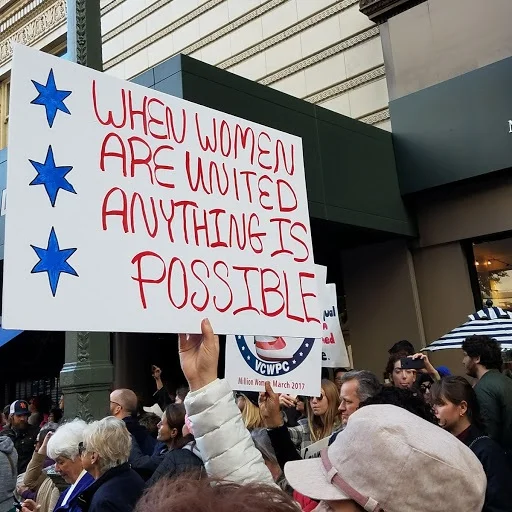 WHEN WOMEN
ARE UNITED
ANYTHING IS
POSSIBLE
VCWPC
Million Women March 2017